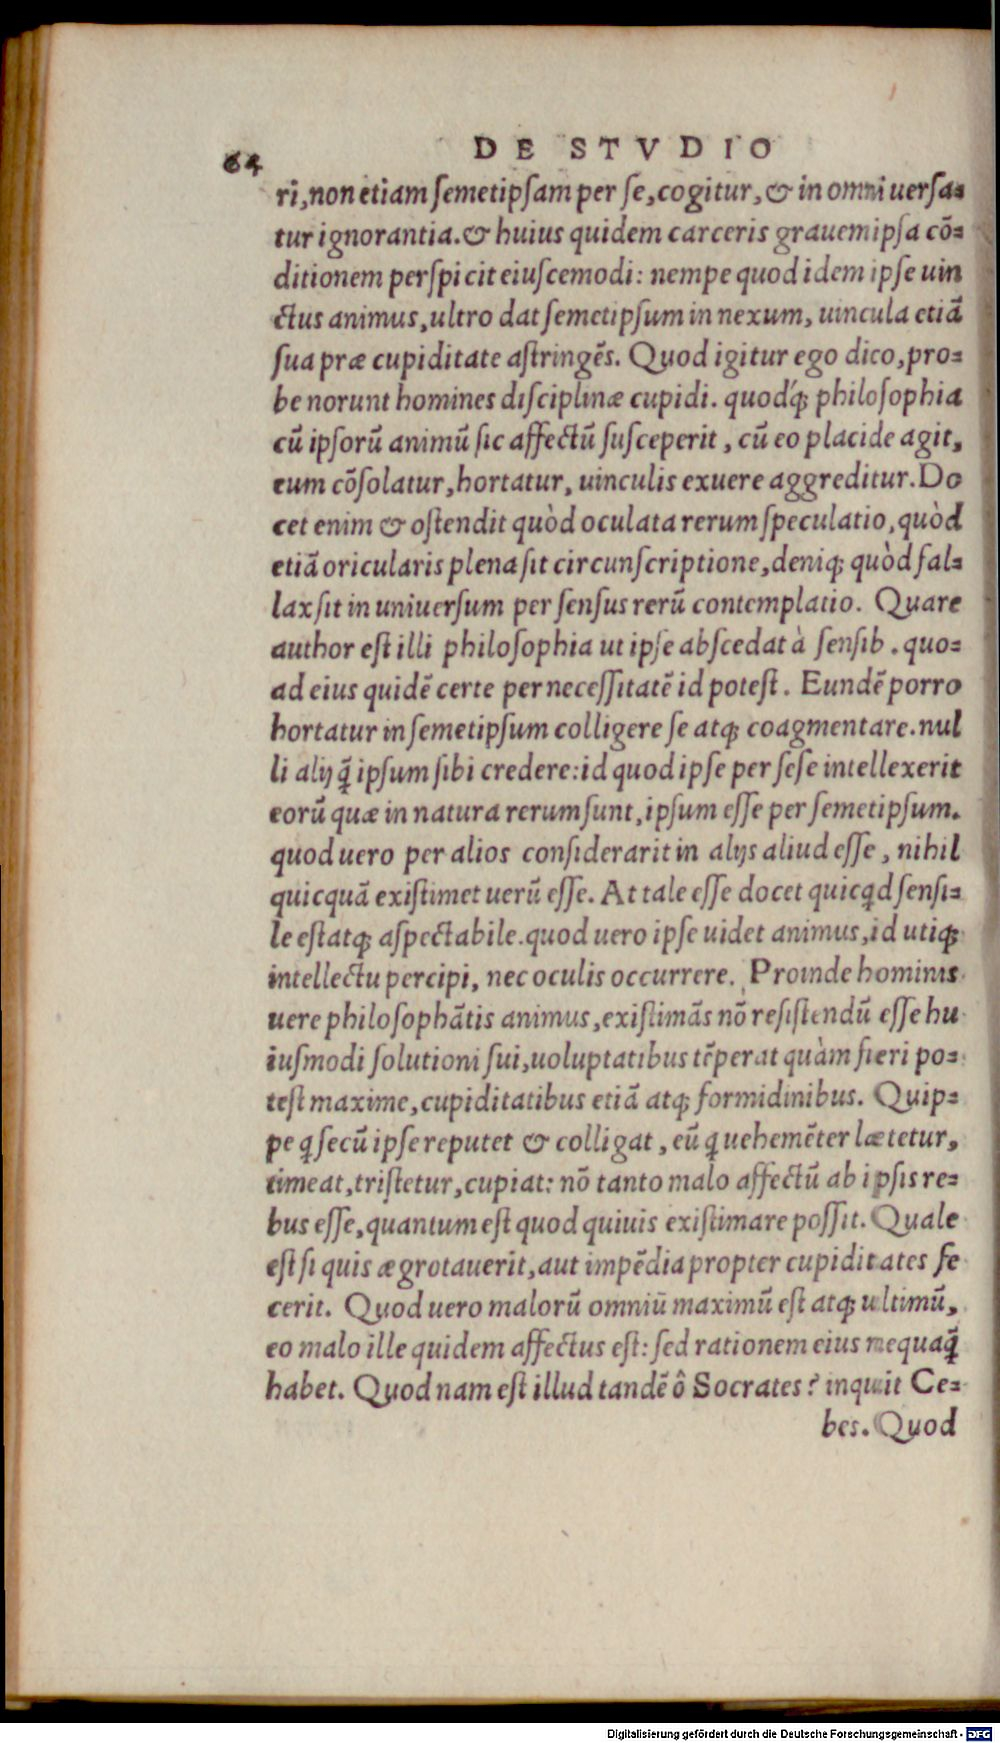 64
DE STVDIO
ri, non etiam ſemetipſam per ſe, cogitur, & in omni uerſa=
tur ignorantia. & huius quidem carceris grauem ipſa cõ=
ditionem perſpicit eiuſcemodi: nempe quod idem ipſe uin
ctus animus, ultro dat ſemetipſum in nexum, uincula etiã
ſua præ cupiditate aſtringẽs. Quod igitur ego dico, pro=
be norunt homines diſciplinæ cupidi. quodq́ꝫ philoſophia
cũ ipſorũ animũ ſic affectũ ſuſceperit, cũ eo placide agit,
eum cõſolatur, hortatur, uinculis exuere aggreditur. Do
cet enim & oſtendit quòd oculata rerum ſpeculatio, quòd
etiã oricularis plena ſit circunſcriptione, deniqꝫ quòd fal=
lax ſit in uniuerſum per ſenſus rerũ contemplatio. Quare
author eſt illi philoſophia ut ipſe abſcedat à ſenſib. quo=
ad eius quidẽ certe per neceſſitatẽ id poteſt. Eundẽ porro
hortatur in ſemetipſum colligere ſe atqꝫ coagmentare. nul
li alij q̃ ipſum ſibi credere: id quod ipſe per ſeſe intellexerit
eorũ quæ in natura rerum ſunt, ipſum eſſe per ſemetipſum.
quod uero per alios conſiderarit in alijs aliud eſſe, nihil
quicquã exiſtimet uerũ eſſe. At tale eſſe docet quicqd ſenſi=
le eſt atqꝫ aſpectabile. quod uero ipſe uidet animus, id utiqꝫ
intellectu percipi, nec oculis occurrere. Proinde hominis
uere philoſophãtis animus, exiſtimãs nõ reſiſtendũ eſſe hu
iuſmodi ſolutioni ſui, uoluptatibus tẽperat quàm fieri po=
teſt maxime, cupiditatibus etiã atqꝫ formidinibus. Quip=
pe q ſecũ ipſe reputet & colligat, eũ q uehemẽter lætetur,
timeat, triſtetur, cupiat: nõ tanto malo affectũ ab ipſis re=
bus eſſe, quantum eſt quod quiuis exiſtimare poſſit. Quale
eſt ſi quis ægrotauerit, aut impẽdia propter cupiditates fe
cerit. Quod uero malorũ omniũ maximũ eſt atqꝫ ultimũ,
eo malo ille quidem affectus eſt: ſed rationem eius nequaq̃
habet. Quod nam eſt illud tandẽ ô Socrates? inquit Ce=
bes. Quod
Digitalisierung gefördert durch die Deutsche Forschungsgemeinschaft - DFG